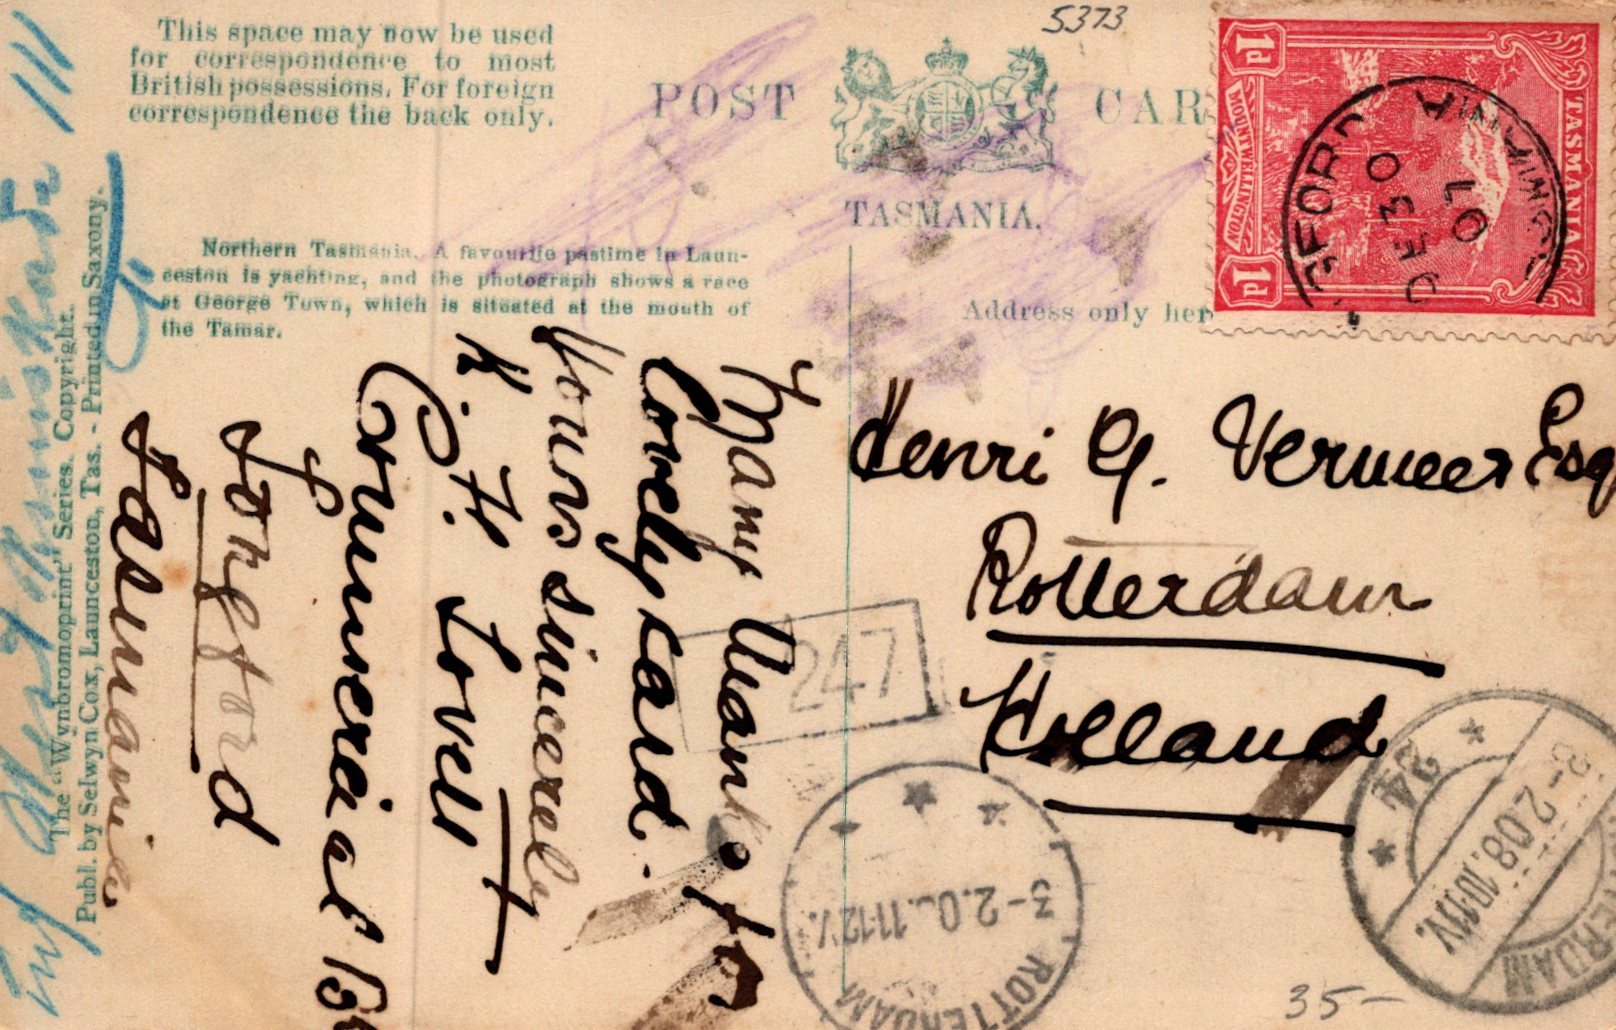 This space may now be used
for correspondence to most
British possessions. For foreign
correspondence the back only.
5373
POST CAR
TASMANIA.
Northern Tasmania. A favourite pastime in Laun-
ceston is yachting, and the photograph shows a race
at George Town, which is situated at the mouth of
the Tamar.
Address only her
The "Wynbromoprint" Series. Copyright.
Publ. by Selwyn Cox, Launceston, Tas. - Printed in Saxony.
Many thanks for
Lovely card.
Yours sincerely
K. H. Lovell
Commercial
Longford
Tasmania
Henri G. Vermeer Esq
Rotterdam
Holland
1d
TASMANIA
FROM MOUNT WELLINGTON
1d
DE 30
07
TASMANIA
247
3-2.0 11-12V.
ROTTERDAM
24
3-2.08.10-11V.
ERDAM
35-